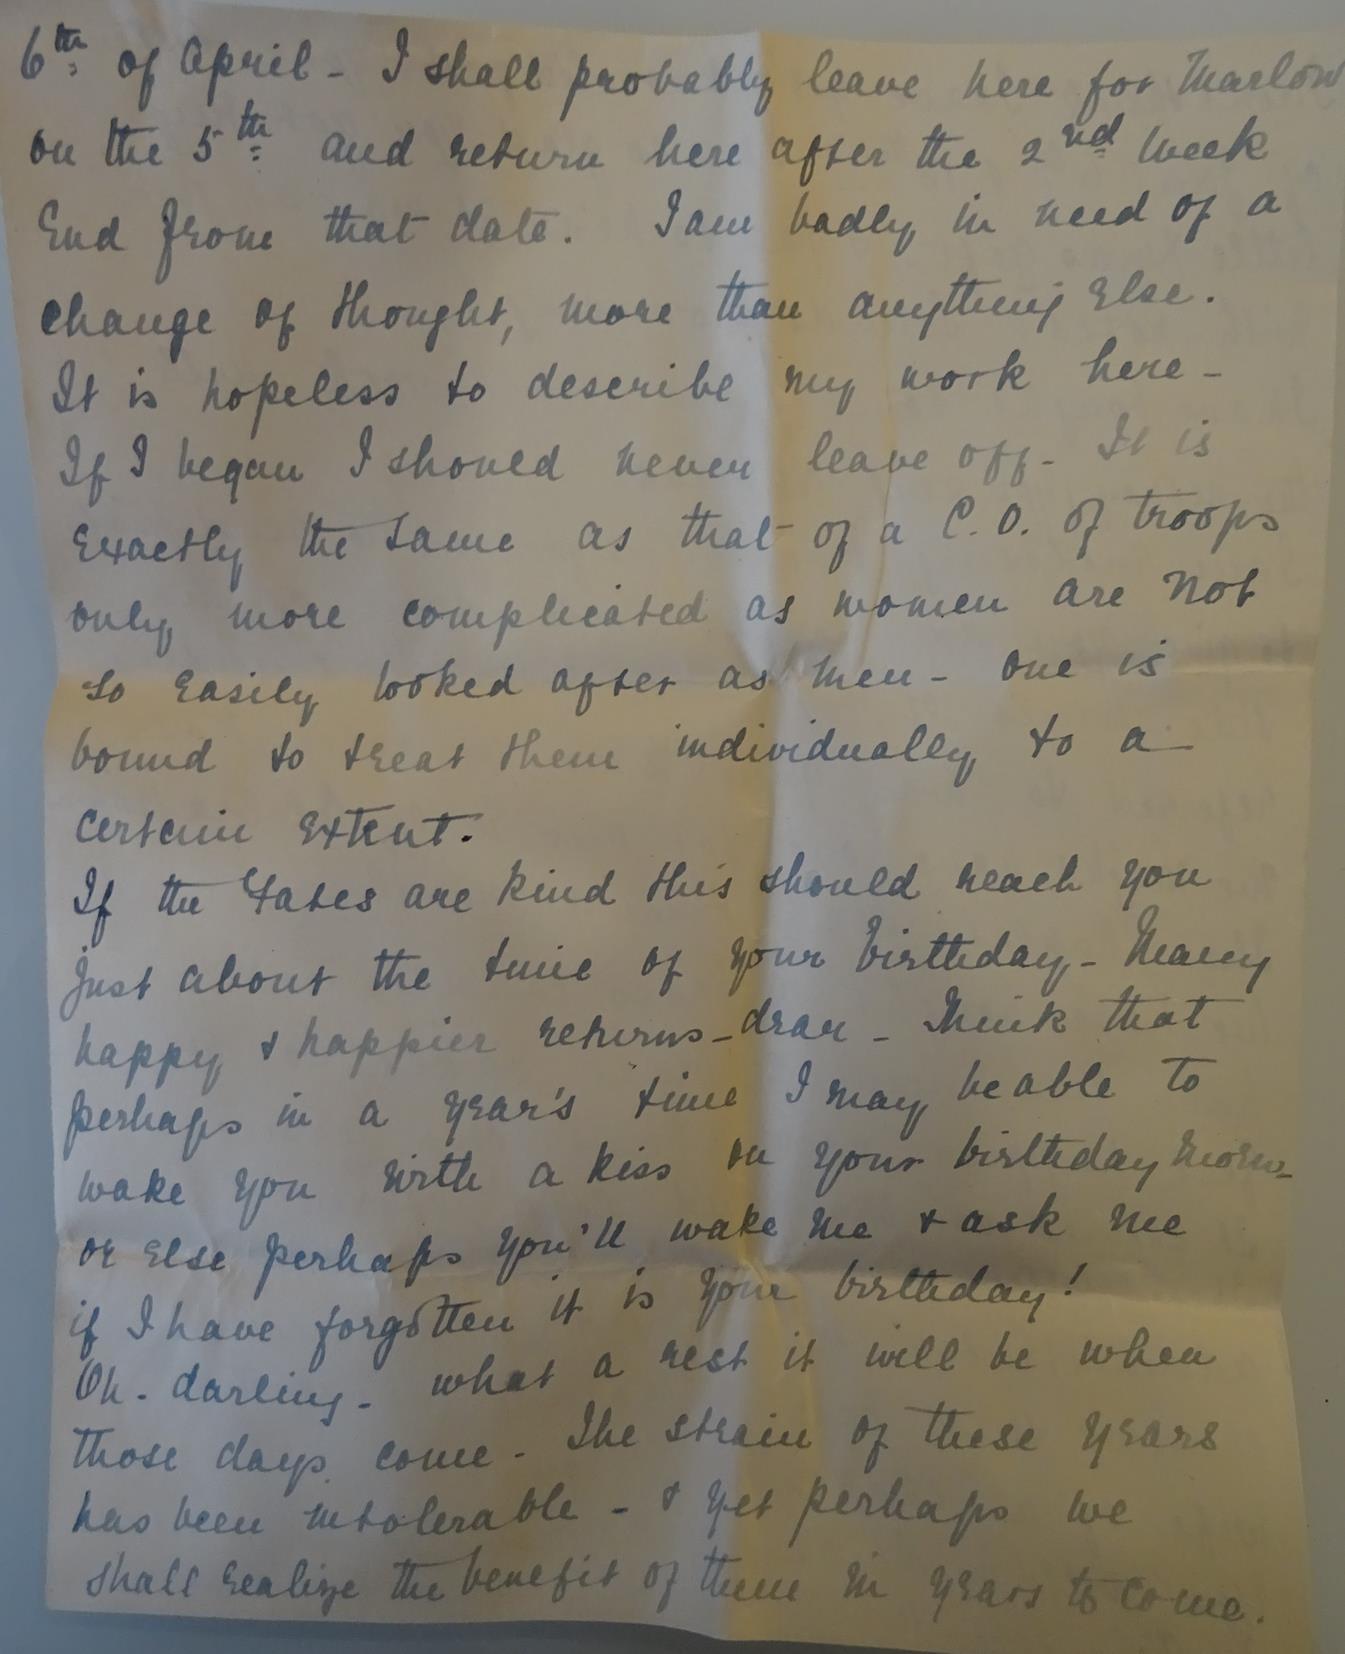 6th of April - I shall probably leave here for Marlow
on the 5th and return here after the 2nd Week
End from that date. I am badly in need of a
change of thought, more than anything Else.
It is hopeless to describe my work here -
If I began I should never leave off - It is
Exactly the same as that of a C.O. of troops
only more complicated as women are not
so Easily looked after as men - one is
bound to treat them individually to a
certain Extent.
If the Fates are kind this should reach you
just about the time of your birthday - Many
happy & happier returns - dear - Think that
perhaps in a year's time I may be able to
wake you with a kiss on your birthday morn -
or Else perhaps you'll wake me & ask me
if I have forgotten it is your birthday!
Oh - darling - what a rest it will be when
those days come - The strain of these years
has been intolerable - & yet perhaps we
shall realize the benefit of them in years to come.